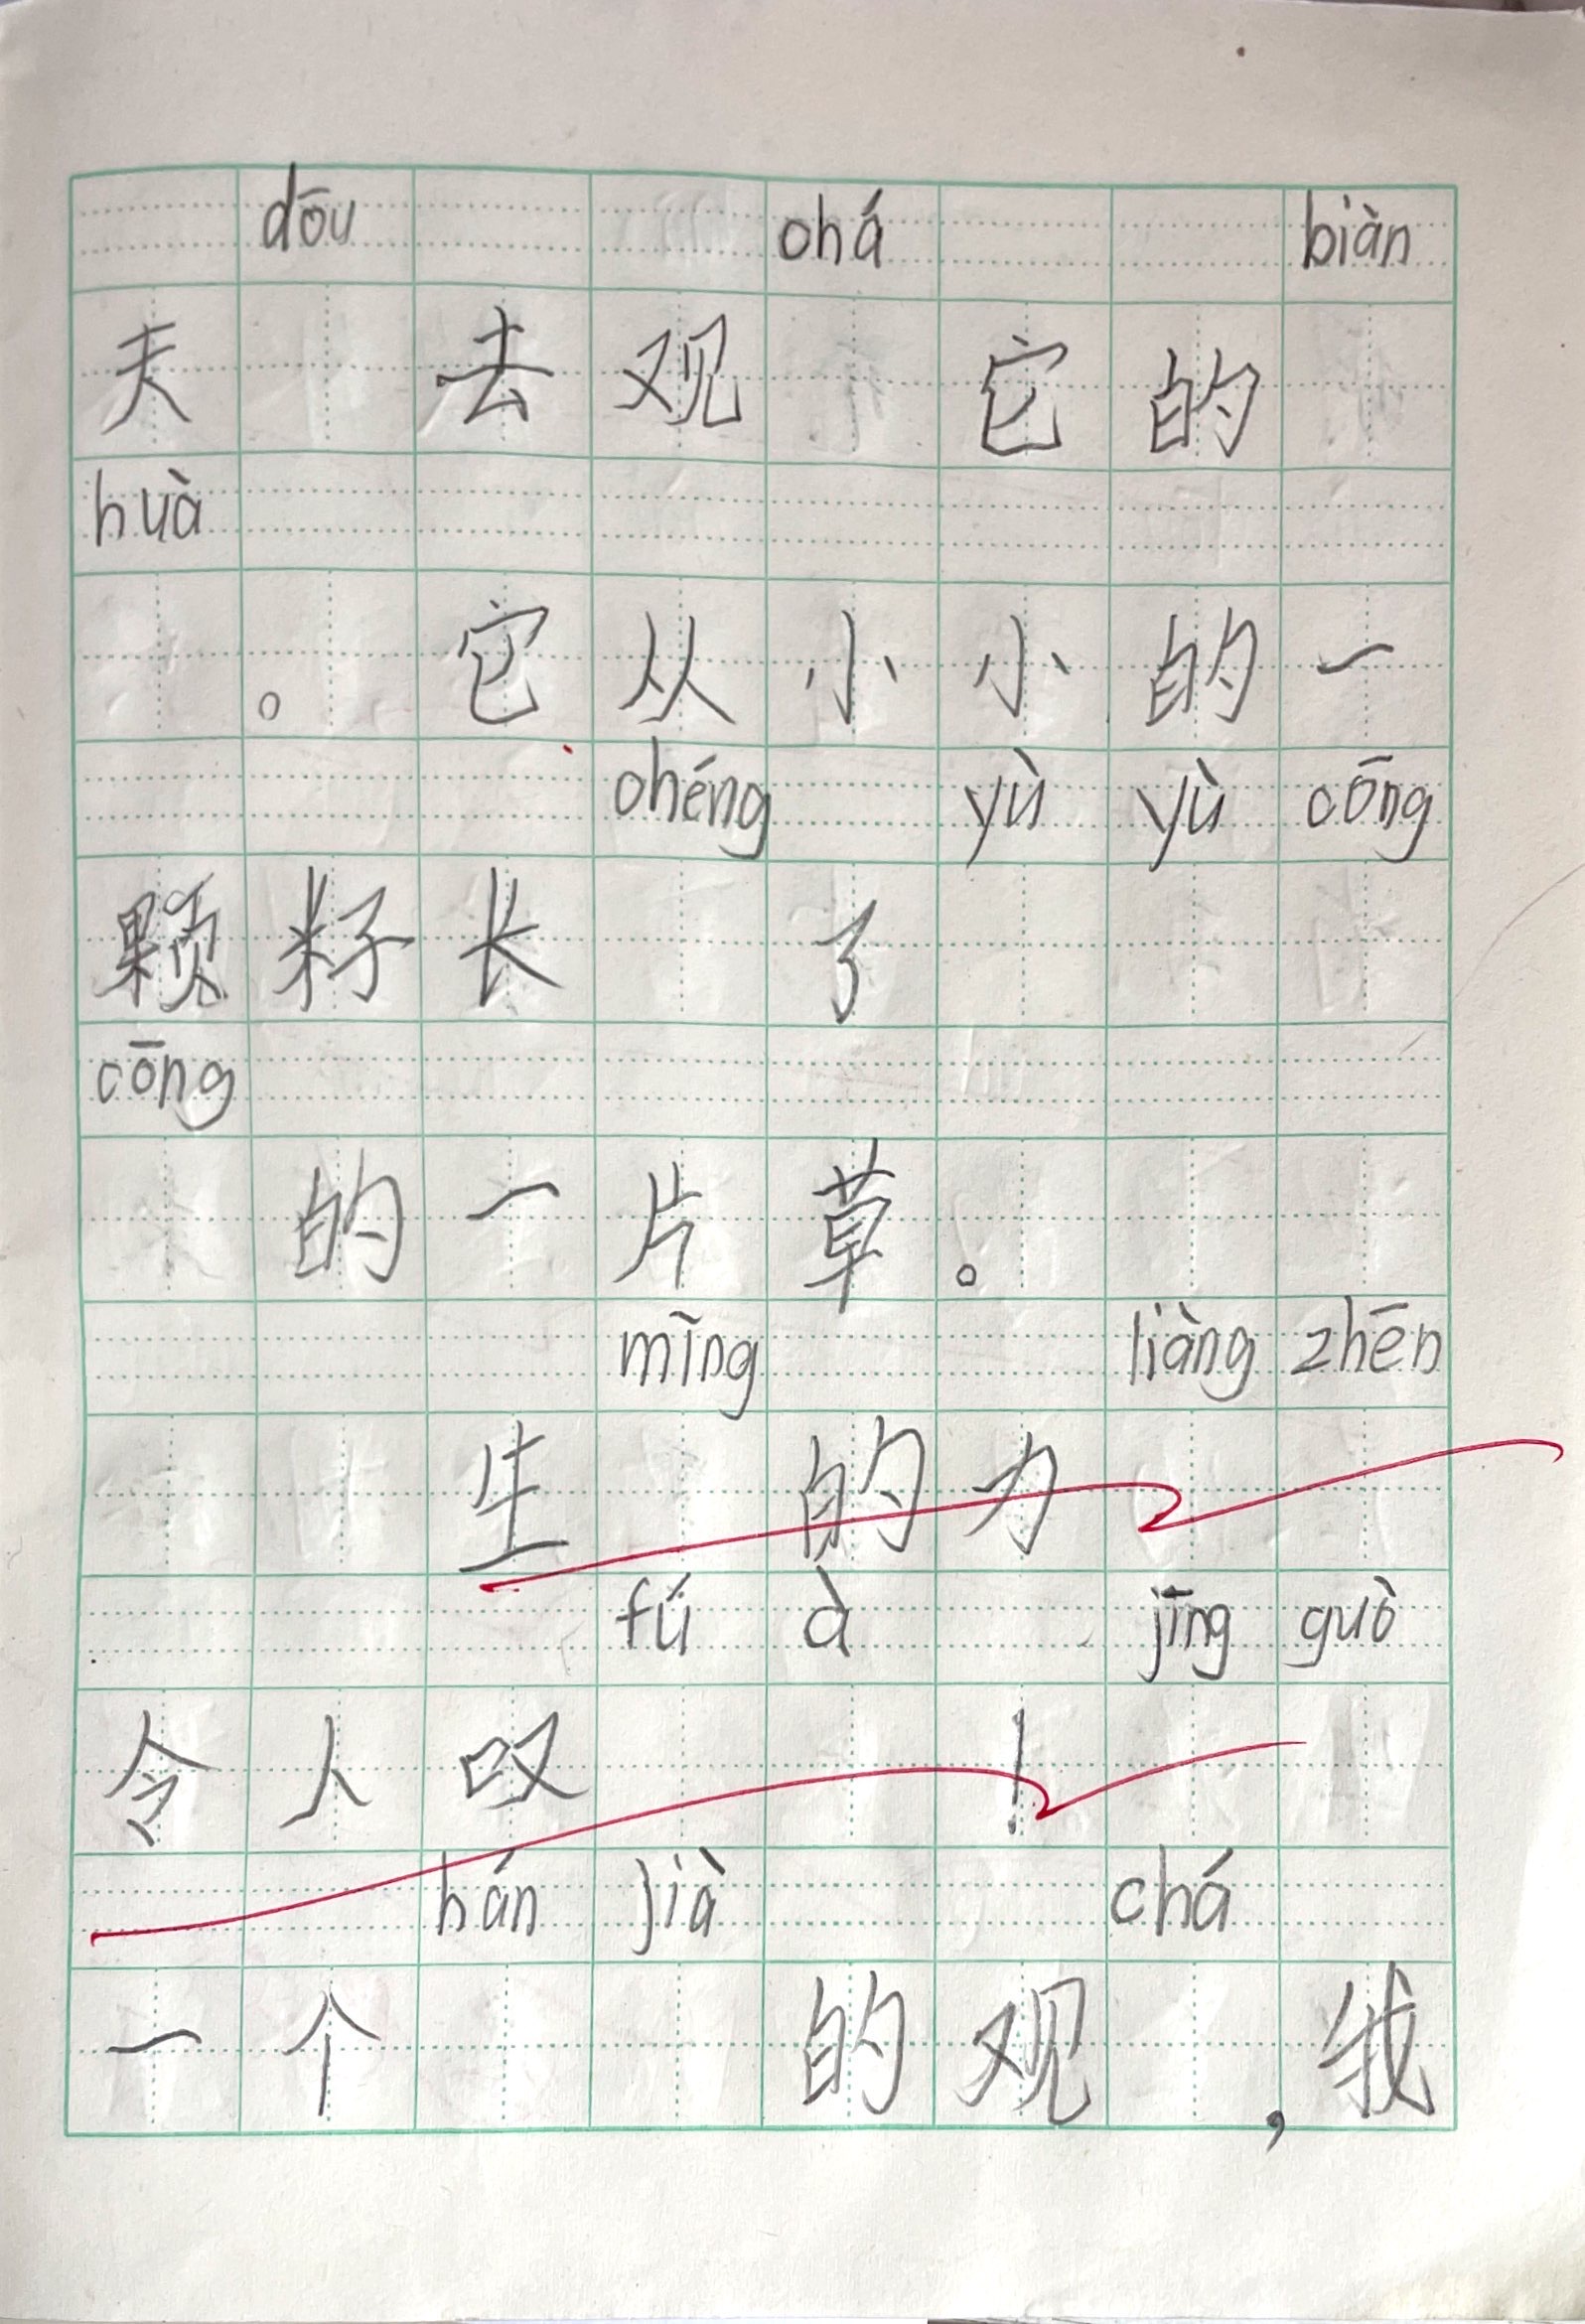 dōu chá biàn
天 去 观 它 的
huà
。 它 从 小 小 的 一
chéng yù yù cōng
颗 籽 长 了
cōng
的 一 片 草 。
mīng liàng zhēn
生 的 力
fú à jīng guò
令 人 叹 !
hán jià chá
一 个 的 观 , 我